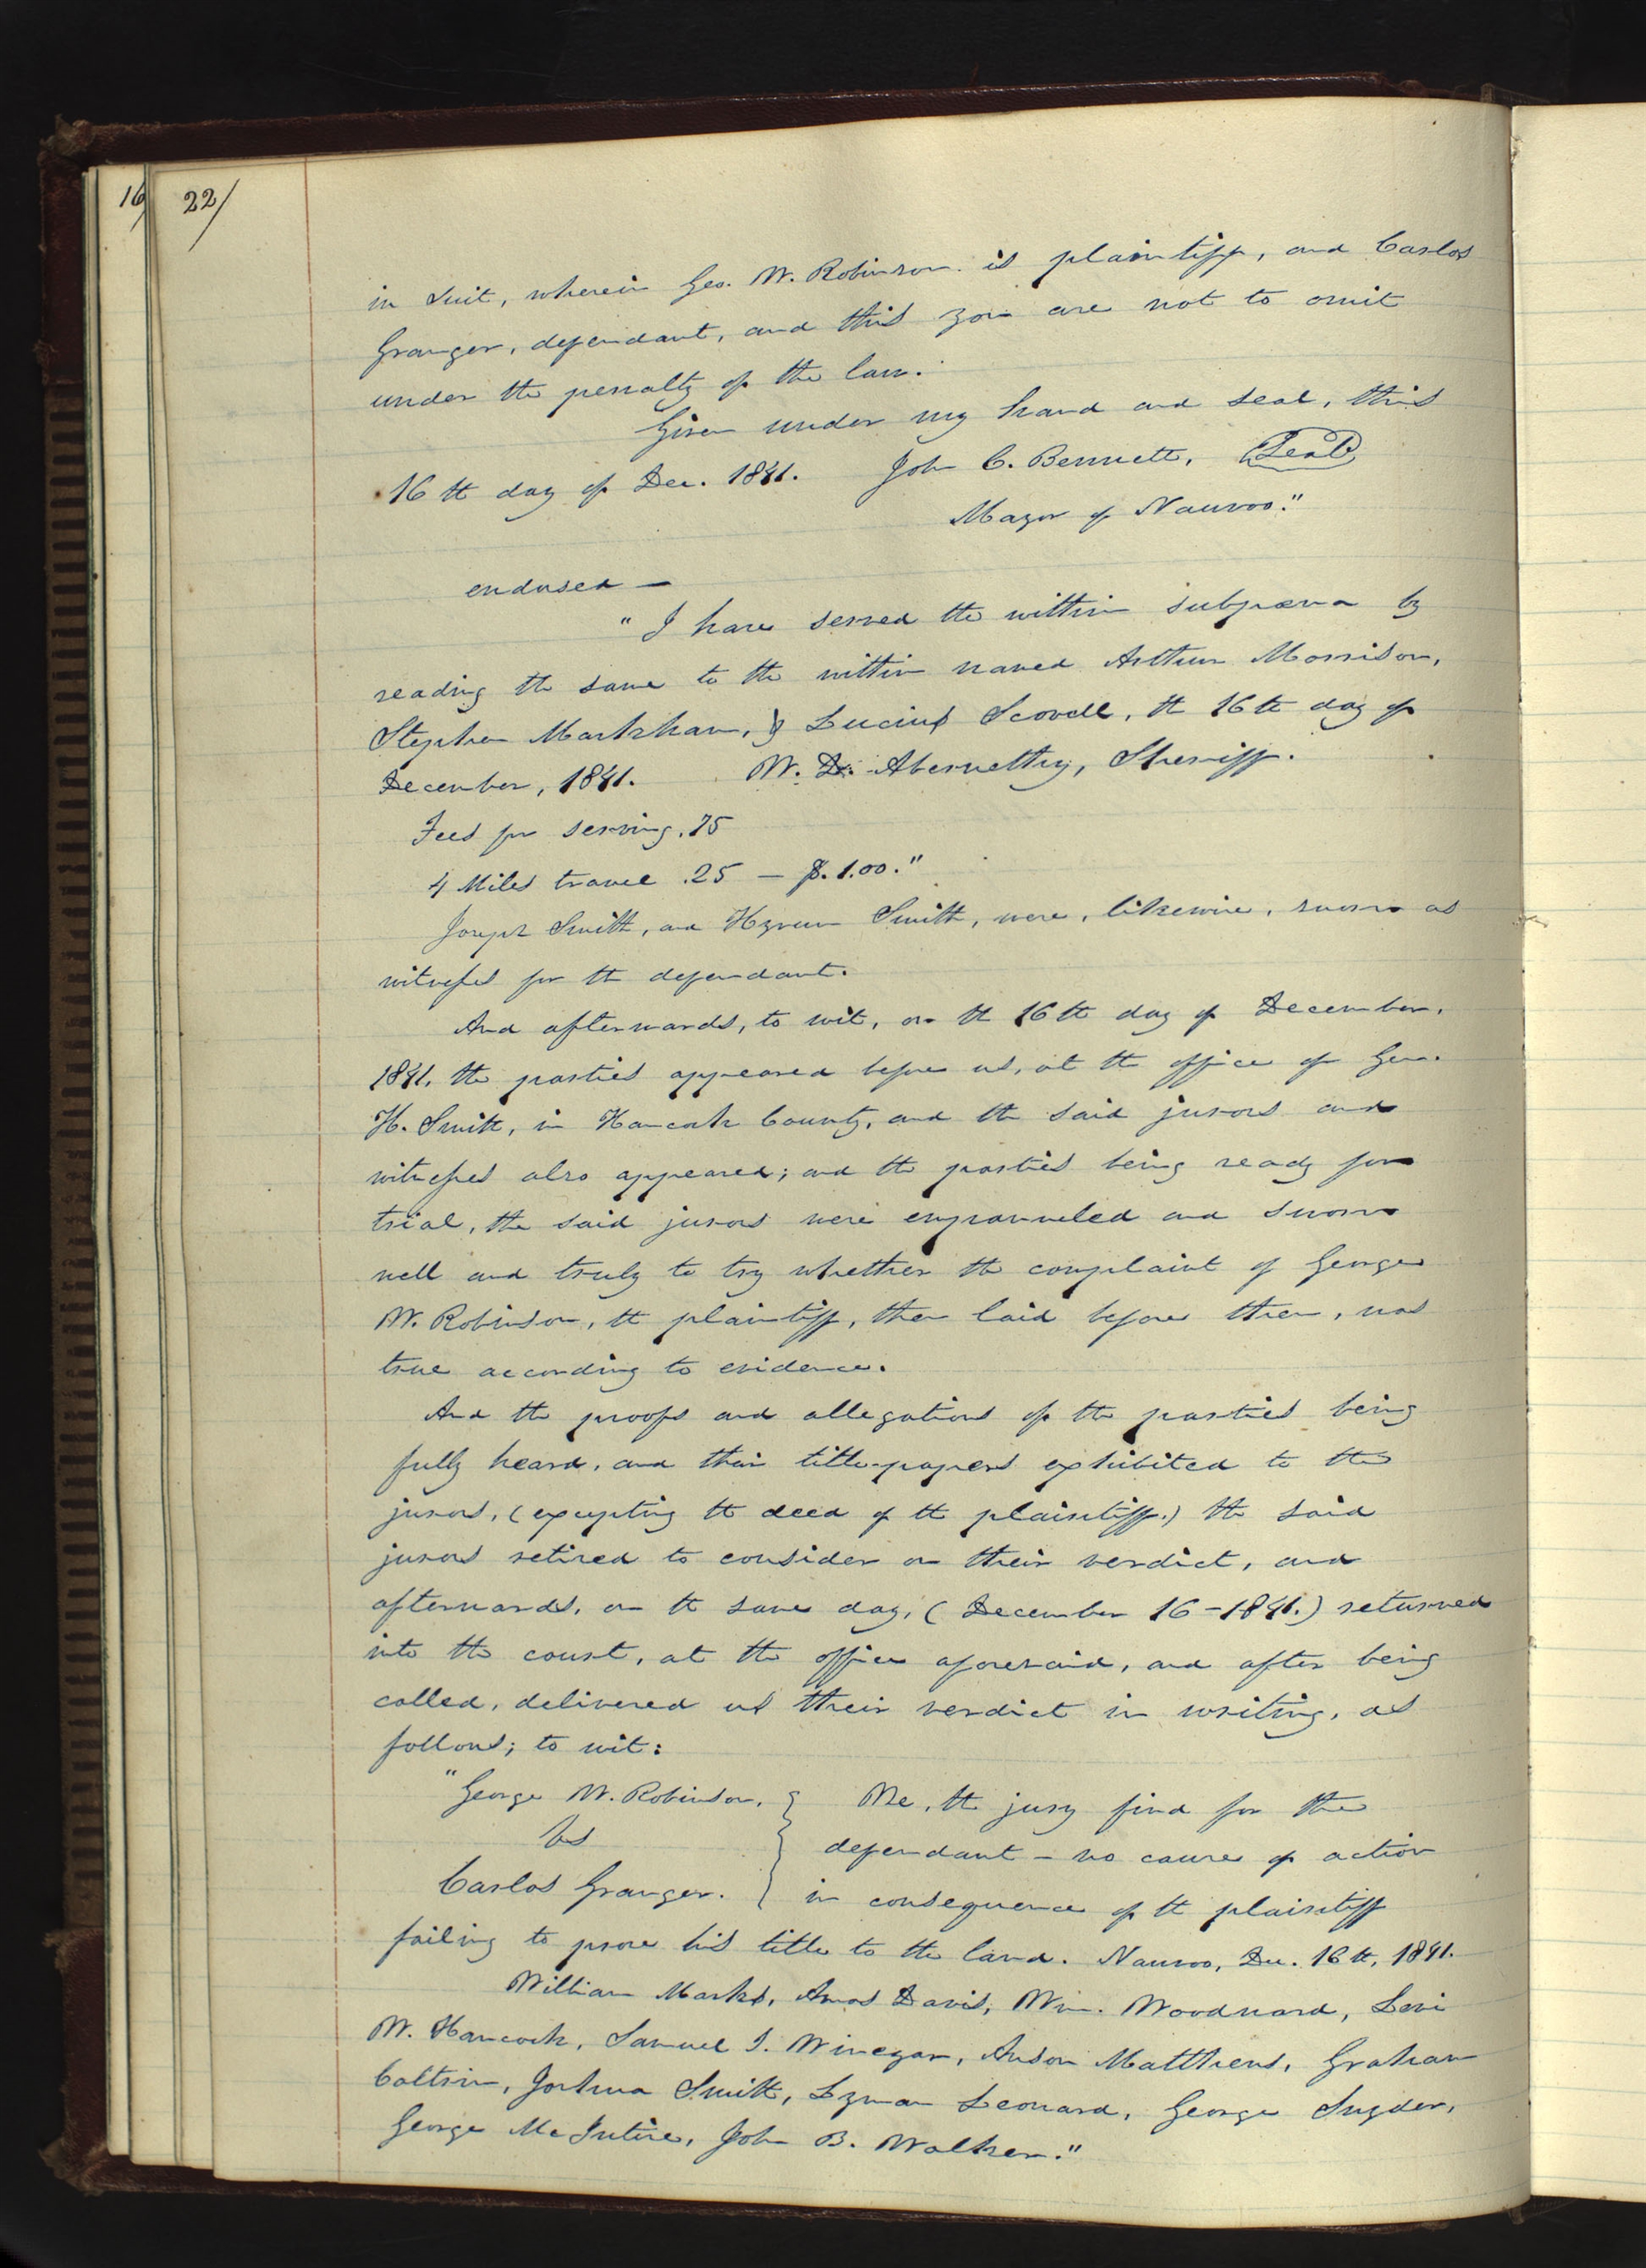 16/
22/
in suit, wherein Geo. W. Robinson is plaintiff, and Carlos
Granger, defendant, and this you are not to omit
under the penalty of the law.
Given under my hand and seal, this
16th day of Dec. 1841. John C. Bennett, (Seal)
Mayor of Nauvoo."
endorsed —
"I have served the within subpœna by
reading the same to the within named Arthur Morrison,
Stephen Markham, & Lucius Scovell, the 16th day of
December, 1841. W. D. Abernethy, Sheriff.
Fees for serving .75
4 Miles travel .25 — $.1.00."
Joseph Smith, and Hyrum Smith, were, likewise, sworn as
witnesses for the defendant.
And afterwards, to wit, on the 16th day of December,
1841, the parties appeared before us, at the office of Geo.
H. Smith, in Hancock County, and the said jurors and
witnesses also appeared; and the parties being ready for
trial, the said jurors were empanneled and sworn
well and truly to try whether the complaint of George
W. Robinson, the plaintiff, then laid before them, was
true according to evidence.
And the proofs and allegations of the parties being
fully heard, and their title-papers exhibited to the
jurors, (excepting the deed of the plaintiff.) the said
jurors retired to consider on their verdict, and
afterwards, on the same day, (December 16–1841.) returned
into the court, at the office aforesaid, and after being
called, delivered us their verdict in writing, as
follows; to wit:
"George W. Robinson, } We, the jury find for the
vs } defendant – no cause of action
Carlos Granger. } in consequence of the plaintiff
failing to prove his title to the land. Nauvoo, Dec. 16th, 1841.
William Marks, Amos Davis, Wm. Woodward, Levi
W. Hancock, Samuel T. Winegar, Anson Matthews, Graham
Coltrin, Joshua Smith, Lyman Leonard, George Snyder,
George McIntire, John B. Walker."